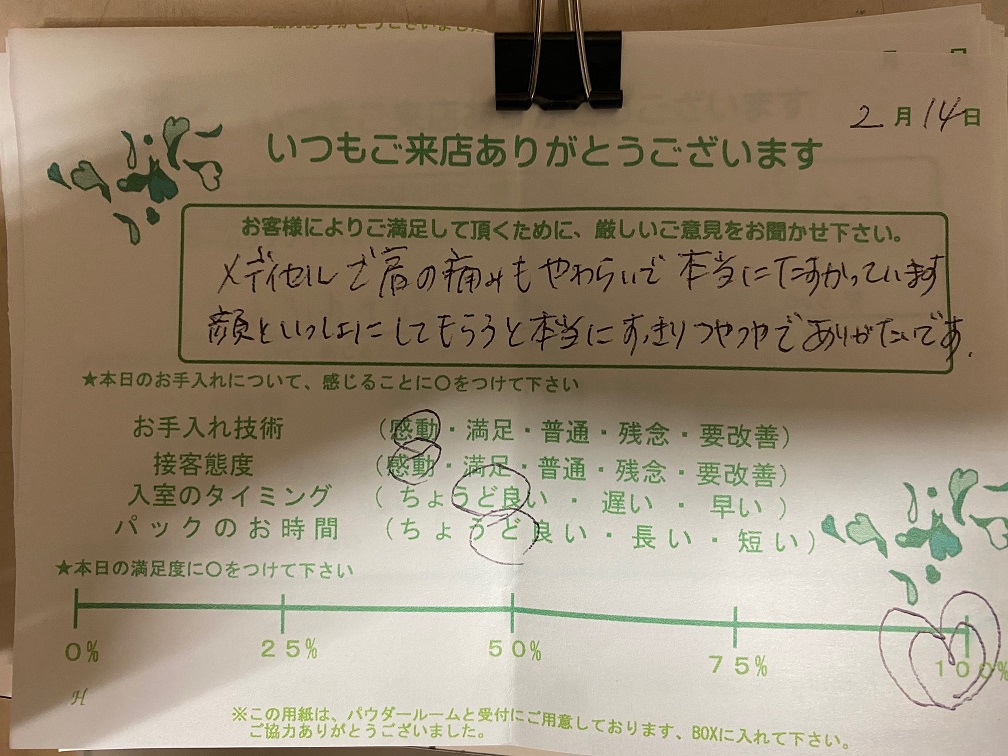 2月14日
いつもご来店ありがとうございます
お客様によりご満足して頂くために、厳しいご意見をお聞かせ下さい。
メディセルで肩の痛みもやわらいで本当にたすかっています
顔といっしょにしてもらうと本当にすっきりつやつやでありがたいです。
★本日のお手入れについて、感じることに〇をつけて下さい
お手入れ技術 (感動・満足・普通・残念・要改善)
接客態度 (感動・満足・普通・残念・要改善)
入室のタイミング (ちょうど良い・遅い・早い)
パックのお時間 (ちょうど良い・長い・短い)
★本日の満足度に〇をつけて下さい
0% 25% 50% 75% 100%
H
※この用紙は、パウダールームと受付にご用意しております、BOXに入れて下さい。
ご協力ありがとうございました。